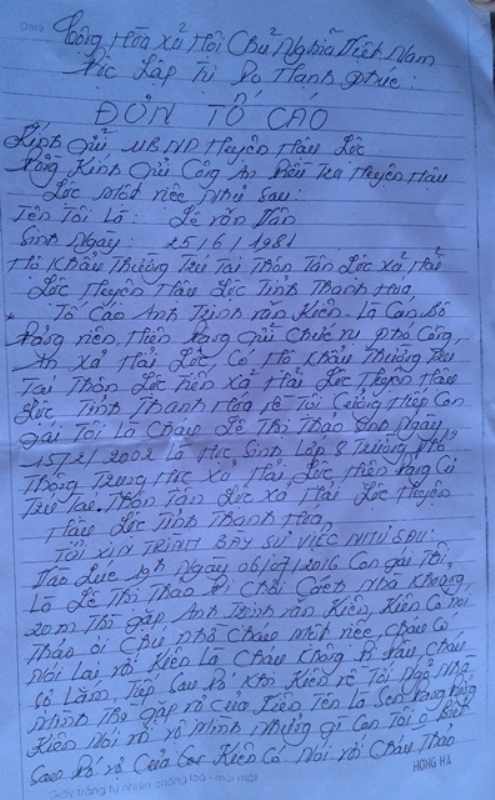 Cộng Hòa Xã Hội Chủ Nghĩa Việt Nam
Độc Lập Tự Do Hạnh Phúc.
ĐƠN TỐ CÁO
Kính Gửi UBND Huyện Hậu Lộc
Đồng Kính Gửi Công An Điều Tra Huyện Hậu
Lộc Một việc Như Sau:
Tên Tôi Là: Lê Văn Dân
Sinh Ngày: 25/6/1981
Hộ Khẩu Thường Trú Tại Thôn Tân Lộc Xã Hải
Lộc Huyện Hậu Lộc Tỉnh Thanh Hóa
Tố Cáo Anh Trịnh văn Kiên. Là Cán Bộ
Đảng viên, Hiện Đang Giữ Chức vụ Phó Công
An Xã Hải Lộc, Có Hộ Khẩu Thường Trú
Tại Thôn Lộc Tiên Xã Hải Lộc Huyện Hậu
Lộc Tỉnh Thanh Hóa về Tội Cưỡng Hiếp Con
gái Tôi Là Cháu Lê Thị Thảo Sinh Ngày
15/2/2002 Là Học Sinh Lớp 8 Trường Phổ
Thông Trung Học Xã Hải Lộc Hiện Đang Cư
Trú Tại Thôn Tân Lộc Xã Hải Lộc Huyện
Hậu Lộc Tỉnh Thanh Hóa.
TÔI XIN TRÌNH BÀY SỰ VIỆC NHƯ SAU:
Vào Lúc 19h Ngày 06/07/2016 Con gái Tôi,
Là Lê Thị Thảo Đi Chơi Cách Nhà Khoảng
20m Thì gặp Anh Trịnh văn Kiên, Kiên Có Nói
Thảo ơi Chú nhờ Cháu Một việc, Cháu Có
Nói Lại với Kiên Là Cháu Không Đi Đâu, Cháu
Sợ Lắm, Tiếp Sau Đó Khi Kiên về Tới Ngõ Nhà
Mình Thì gặp vợ của Kiên Tên là Sen Đang đứng
Kiên Nói với vợ Mình Những gì Con Tôi o Biết
Sau Đó vợ Của Kiên Có Nói với Cháu Thảo
Giấy trắng tự nhiên chống loá - mỏi mắt
HỒNG HÀ